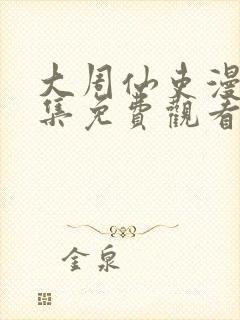 大周仙吏漫
集免費觀看
金泉